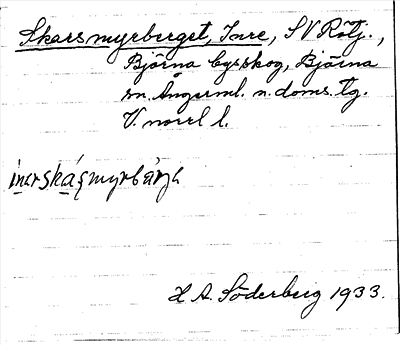 Skarsmyrberget, Inre, SV Rötj.,
Björna byskog, Björna
sn. Ångerml. n. doms. tg.
V. norrl l.
inərskásmyrbárjə
H A. Söderberg 1933.